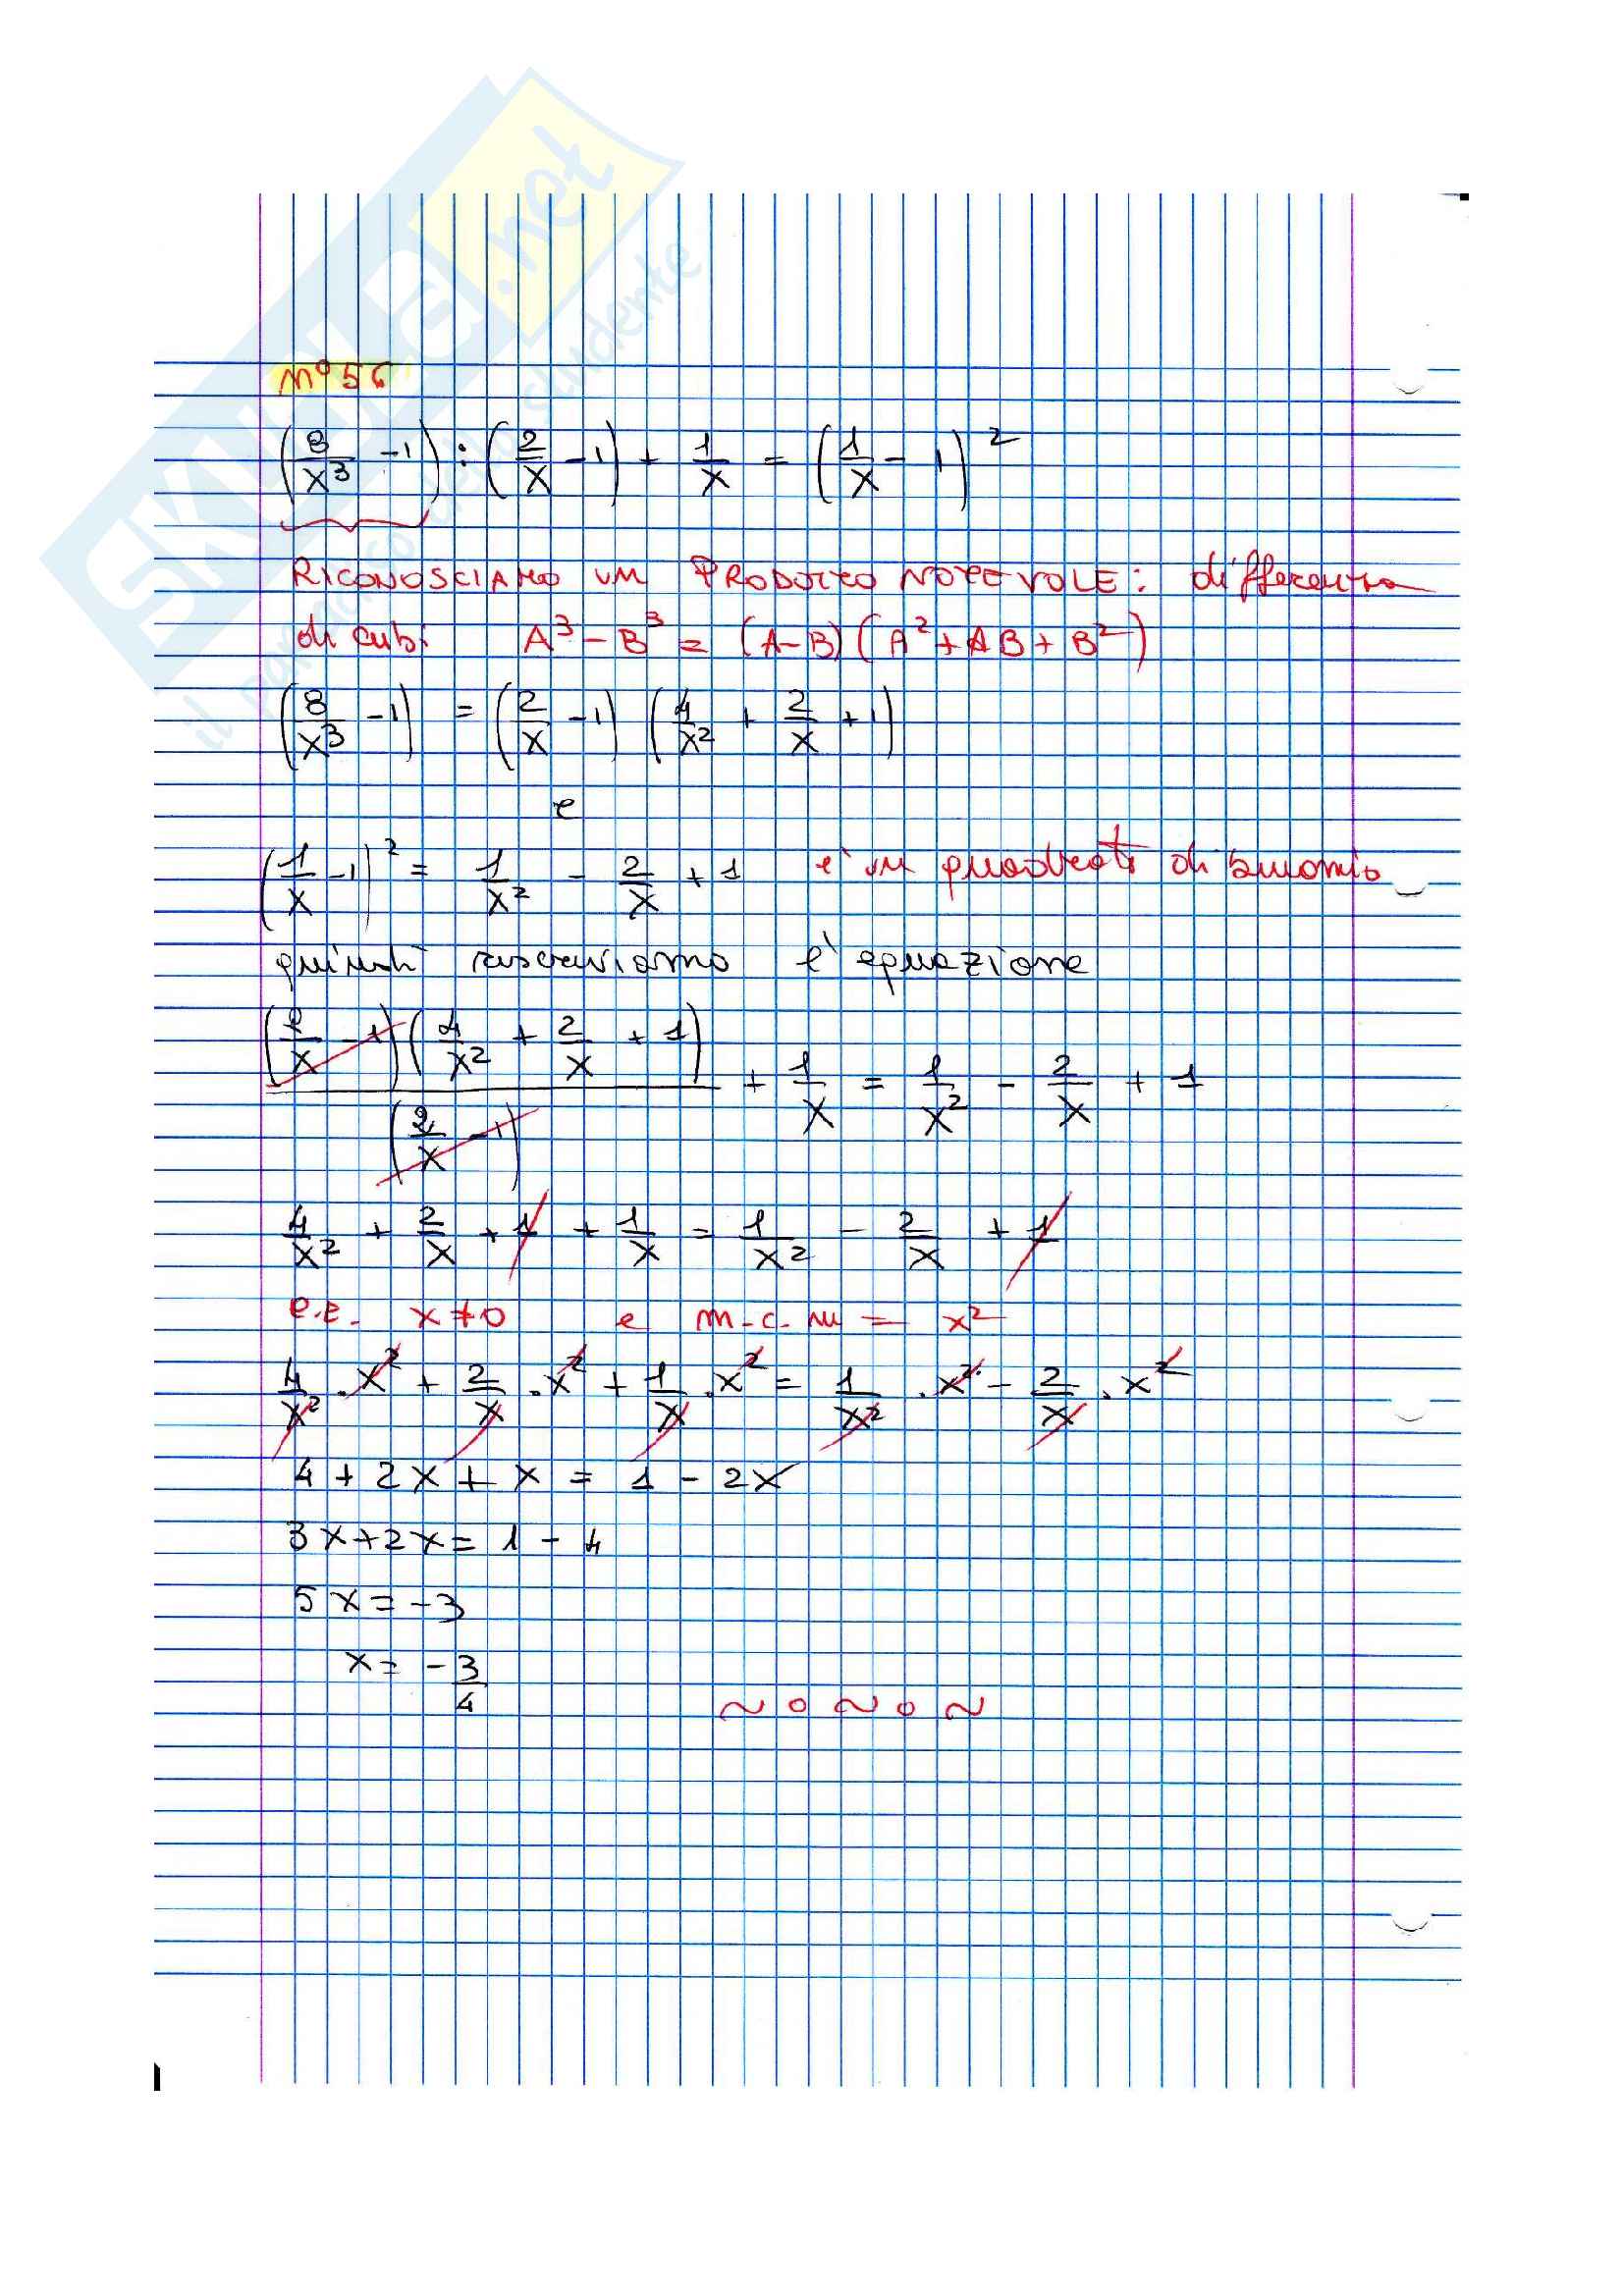 SKUOLA.net
il paradiso dello studente
n° 56
(8/x³ - 1) : (2/x - 1) + 1/x = (1/x - 1)²
RICONOSCIAMO UN PRODOTTO NOTEVOLE: differenza
di cubi A³ - B³ = (A-B)(A² + AB + B²)
(8/x³ - 1) = (2/x - 1)(4/x² + 2/x + 1)
e
(1/x - 1)² = 1/x² - 2/x + 1 è un quadrato di binomio
quindi riscriviamo l'equazione
(2/x - 1)(4/x² + 2/x + 1)/(2/x - 1) + 1/x = 1/x² - 2/x + 1
4/x² + 2/x + 1 + 1/x = 1/x² - 2/x + 1
c.e. x ≠ 0 e m.c.m = x²
4/x² · x² + 2/x · x² + 1/x · x² = 1/x² · x² - 2/x · x²
4 + 2x + x = 1 - 2x
3x + 2x = 1 - 4
5x = -3
x = -3/4
~ o ~ o ~